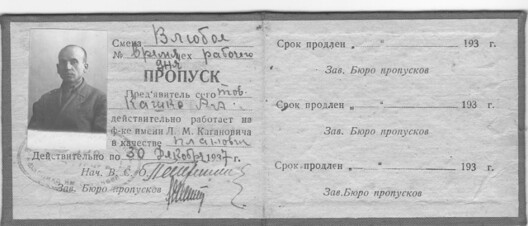 Смена Влюбое
№ время цех рабочего
дня
ПРОПУСК
Пред'явитель сего тов.
действительно работает на
ф-ке имени Л. М. Кагановича
в качестве плановик
Действительно по 30 декабря 1937 г.
Нач. В. С. б.
Зав. Бюро пропусков
Срок продлен " 193 г.
Зав. Бюро пропусков
Срок продлен " " 193 г.
Зав. Бюро пропусков
Срок продлен " " 193 г.
Зав.Бюро пропусков